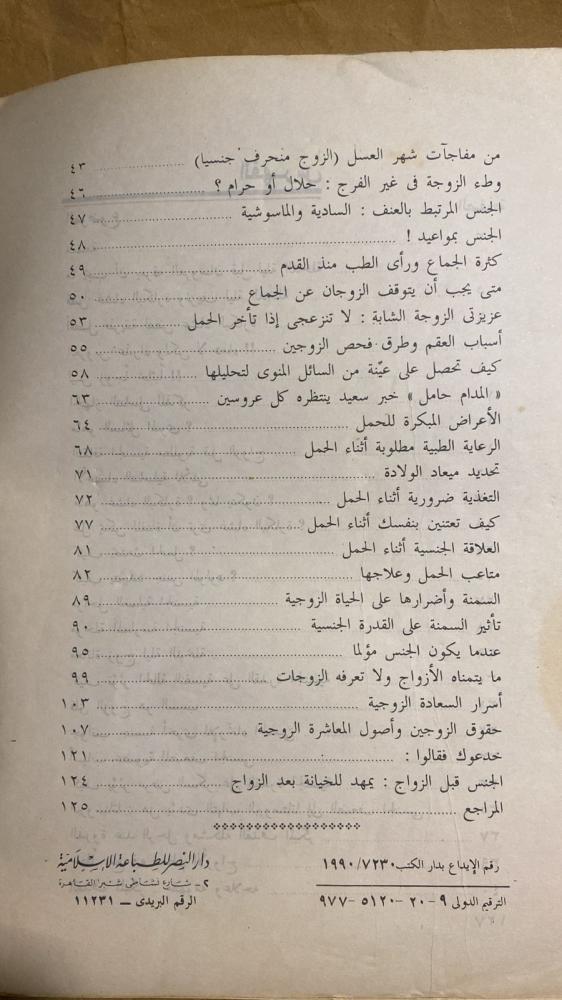 من مفاجآت شهر العسل (الزوج منحرف جنسيا) ........................ ٤٣
وطء الزوجة فى غير الفرج : حلال أو حرام ؟ ........................ ٤٦
الجنس المرتبط بالعنف : السادية والماسوشية ........................ ٤٧
الجنس بمواعيد ! ........................ ٤٨
كثرة الجماع ورأى الطب منذ القدم ........................ ٤٩
متى يجب أن يتوقف الزوجان عن الجماع ........................ ٥٠
عزيزتى الزوجة الشابة : لا تنزعجى إذا تأخر الحمل ........................ ٥٣
أسباب العقم وطرق فحص الزوجين ........................ ٥٥
كيف تحصل على عيّنة من السائل المنوى لتحليلها ........................ ٥٨
« المدام حامل » خبر سعيد ينتظره كل عروسين ........................ ٦٣
الأعراض المبكرة للحمل ........................ ٦٤
الرعاية الطبية مطلوبة أثناء الحمل ........................ ٦٨
تحديد ميعاد الولادة ........................ ٧١
التغذية ضرورية أثناء الحمل ........................ ٧٢
كيف تعتنين بنفسك أثناء الحمل ........................ ٧٧
العلاقة الجنسية أثناء الحمل ........................ ٨١
متاعب الحمل وعلاجها ........................ ٨٢
السمنة وأضرارها على الحياة الزوجية ........................ ٨٩
تأثير السمنة على القدرة الجنسية ........................ ٩٠
عندما يكون الجنس مؤلما ........................ ٩٥
ما يتمناه الأزواج ولا تعرفه الزوجات ........................ ٩٩
أسرار السعادة الزوجية ........................ ١٠٣
حقوق الزوجين وأصول المعاشرة الزوجية ........................ ١٠٧
خدعوك فقالوا : ........................ ١٢١
الجنس قبل الزواج : يمهد للخيانة بعد الزواج ........................ ١٢٤
المراجع ........................ ١٢٥
رقم الإيداع بدار الكتب ١٩٩٠/٧٢٣٠
الترقيم الدولى ٩ - ٢٠ - ٥١٢٠ - ٩٧٧
دار النصر للطباعة الإسلامية
٢ - شارع نشاطى شبرا القاهرة
الرقم البريدى ــ ١١٢٣١